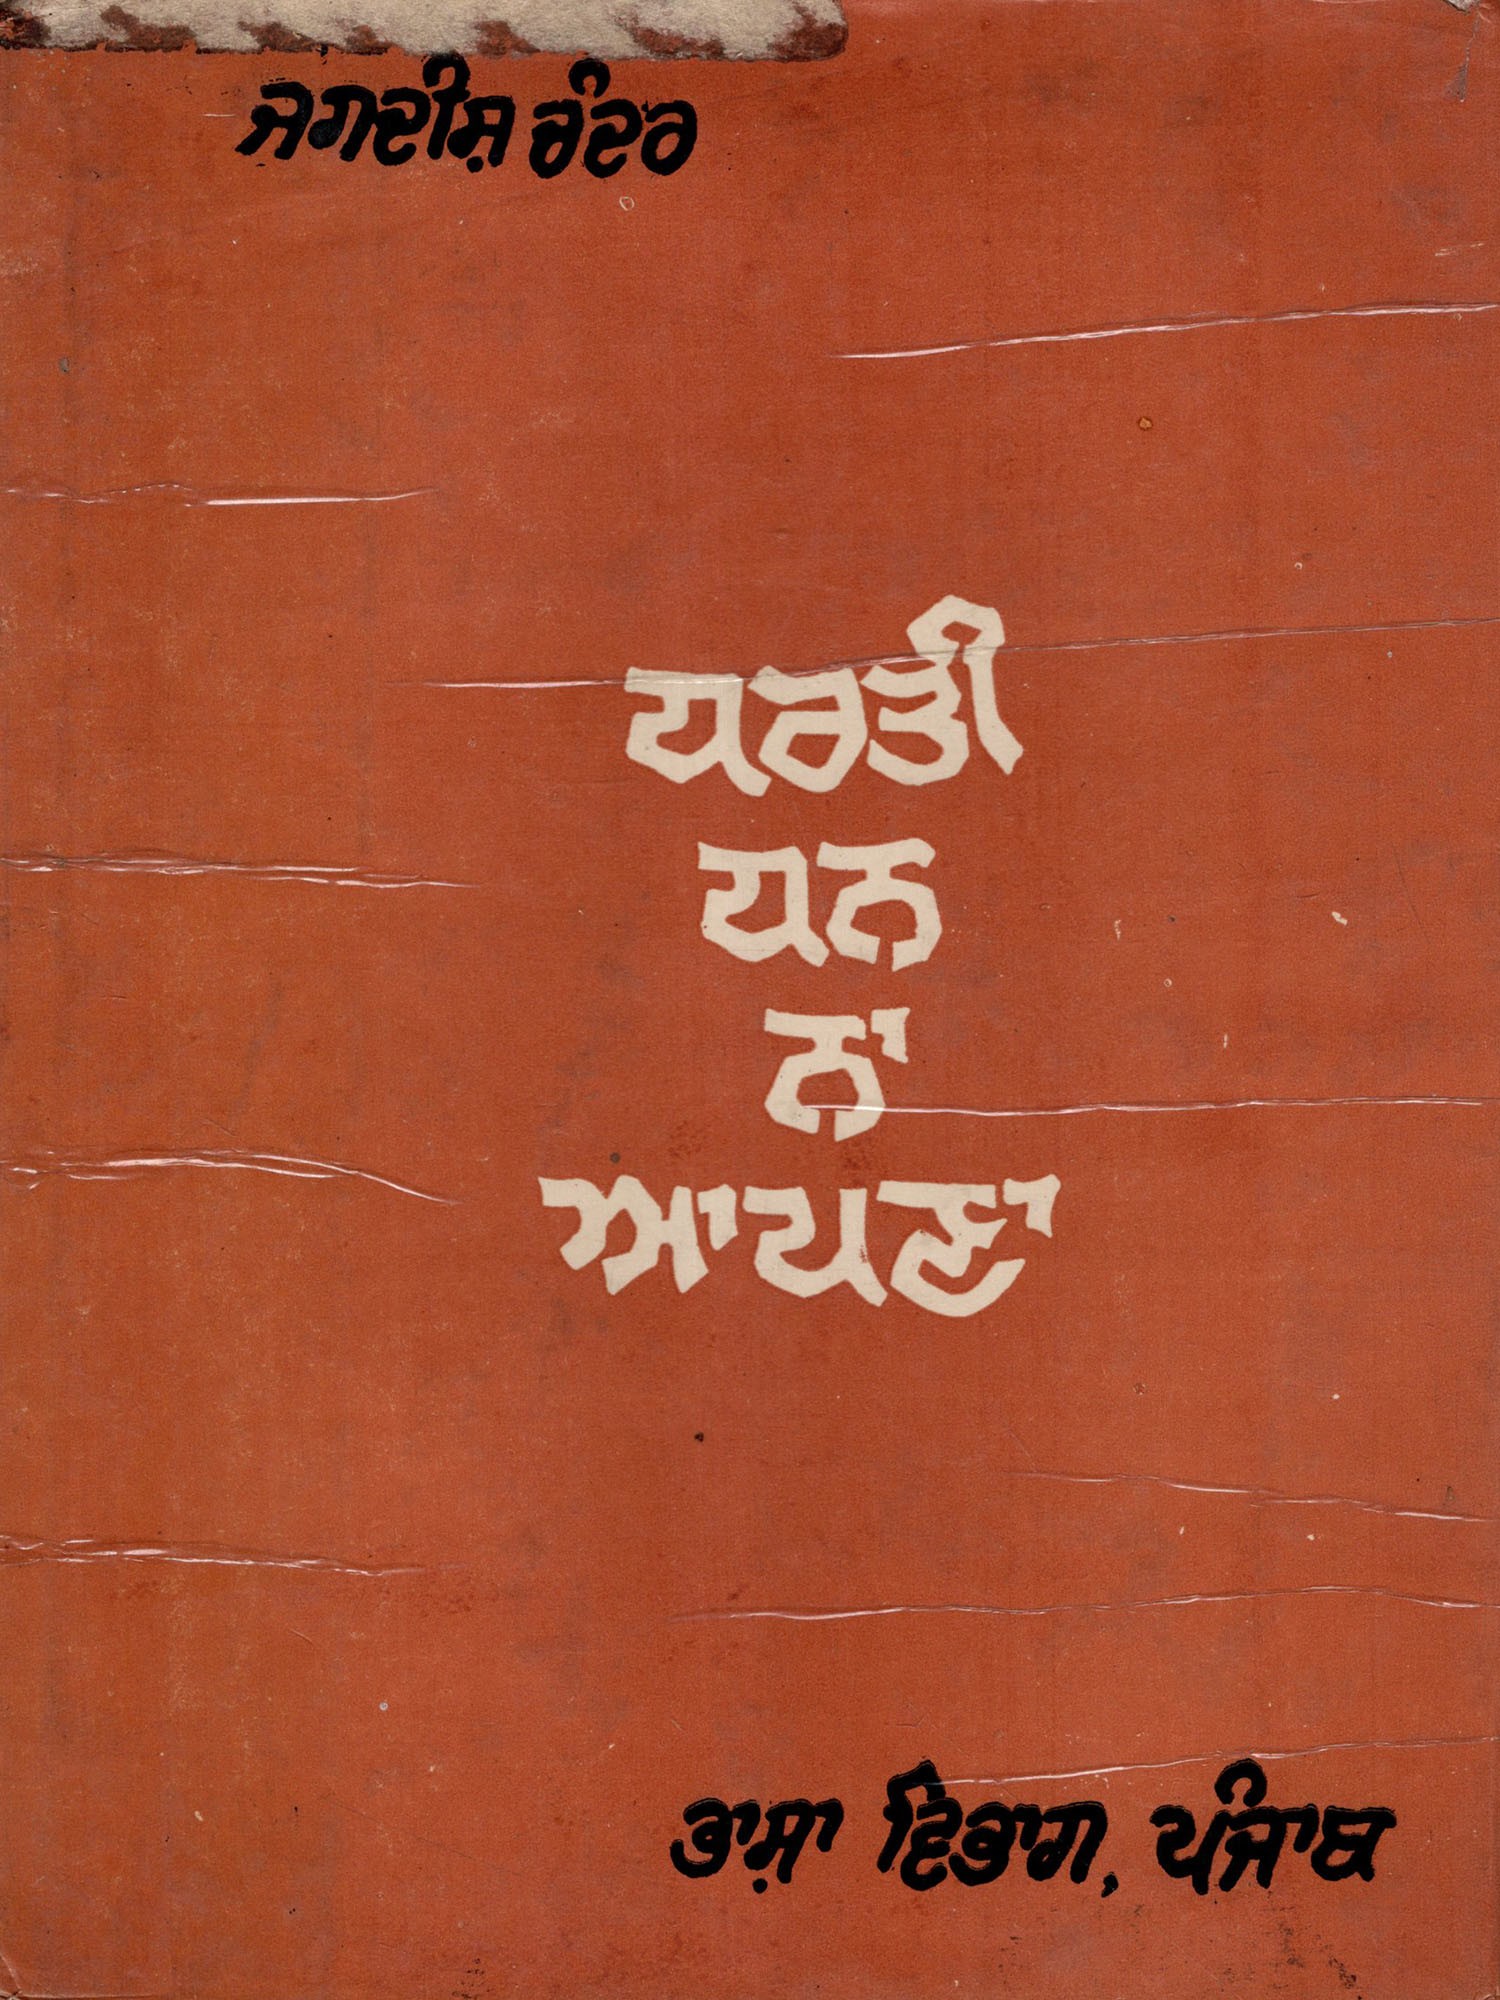 ਜਗਦੀਸ਼ ਚੰਦਰ
ਧਰਤੀ
ਧਨ
ਨਾ
ਆਪਣਾ
ਭਾਸ਼ਾ ਵਿਭਾਗ, ਪੰਜਾਬ